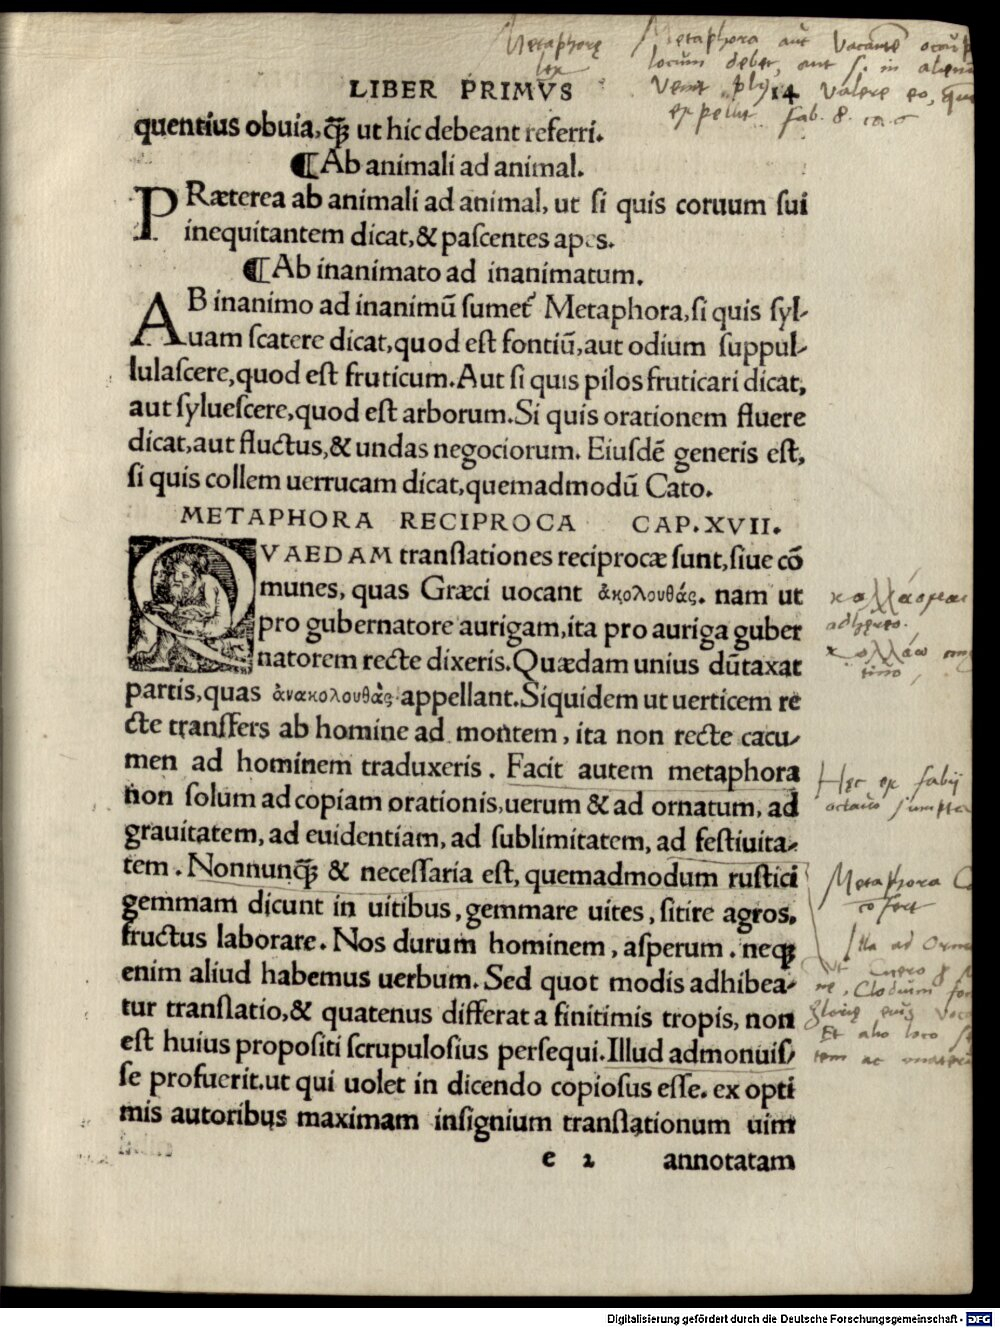 Metaphorę
lex
Metaphora aut vacantē
locum debet, aut
valere eo,
expellit. fab. 8. ca. 6
LIBER PRIMVS 14
quentius obuia, ꝙ̃ ut hic debeant referri.
¶Ab animali ad animal.
PRæterea ab animali ad animal, ut ſi quis coruum ſui
inequitantem dicat,& paſcentes apes.
¶Ab inanimato ad inanimatum.
AB inanimo ad inanimū ſumet᷑ Metaphora,ſi quis ſyl-
uam ſcatere dicat,quod eſt fontiū,aut odium ſuppul-
lulaſcere,quod eſt fruticum.Aut ſi quis pilos fruticari dicat,
aut ſylueſcere,quod eſt arborum.Si quis orationem fluere
dicat,aut fluctus,& undas negociorum. Eiuſdē generis eſt,
ſi quis collem uerrucam dicat,quemadmodū Cato.
METAPHORA RECIPROCA CAP.XVII.
QVAEDAM tranſlationes reciprocæ ſunt,ſiue cō
munes, quas Græci uocant ἀκολουθάς. nam ut
pro gubernatore aurigam,ita pro auriga guber
natorem recte dixeris.Quædam unius dūtaxat
partis,quas ἀνακολουθὰς appellant.Siquidem ut uerticem re
cte tranſfers ab homine ad montem, ita non recte cacu-
men ad hominem traduxeris. Facit autem metaphora
non ſolum ad copiam orationis,uerum & ad ornatum, ad
grauitatem, ad euidentiam, ad ſublimitatem, ad feſtiuita-
tem. Nonnunꝙ̃ & neceſſaria eſt, quemadmodum ruſtici
gemmam dicunt in uitibus, gemmare uites, ſitire agros,
fructus laborare. Nos durum hominem, aſperum. neqꝫ
enim aliud habemus uerbum. Sed quot modis adhibea-
tur tranſlatio,& quatenus differat a finitimis tropis, non
eſt huius propoſiti ſcrupuloſius perſequi.Illud admonuiſ-
ſe profuerit.ut qui uolet in dicendo copioſus eſſe. ex opti
mis autoribus maximam inſignium tranſlationum uim
e 2 annotatam
adhęreo.
κολλάω
Hęc ex fabij
octauo sumpta
Metaphora
Illa ad
Clodium
Et alio loco
Digitalisierung gefördert durch die Deutsche Forschungsgemeinschaft - DFG